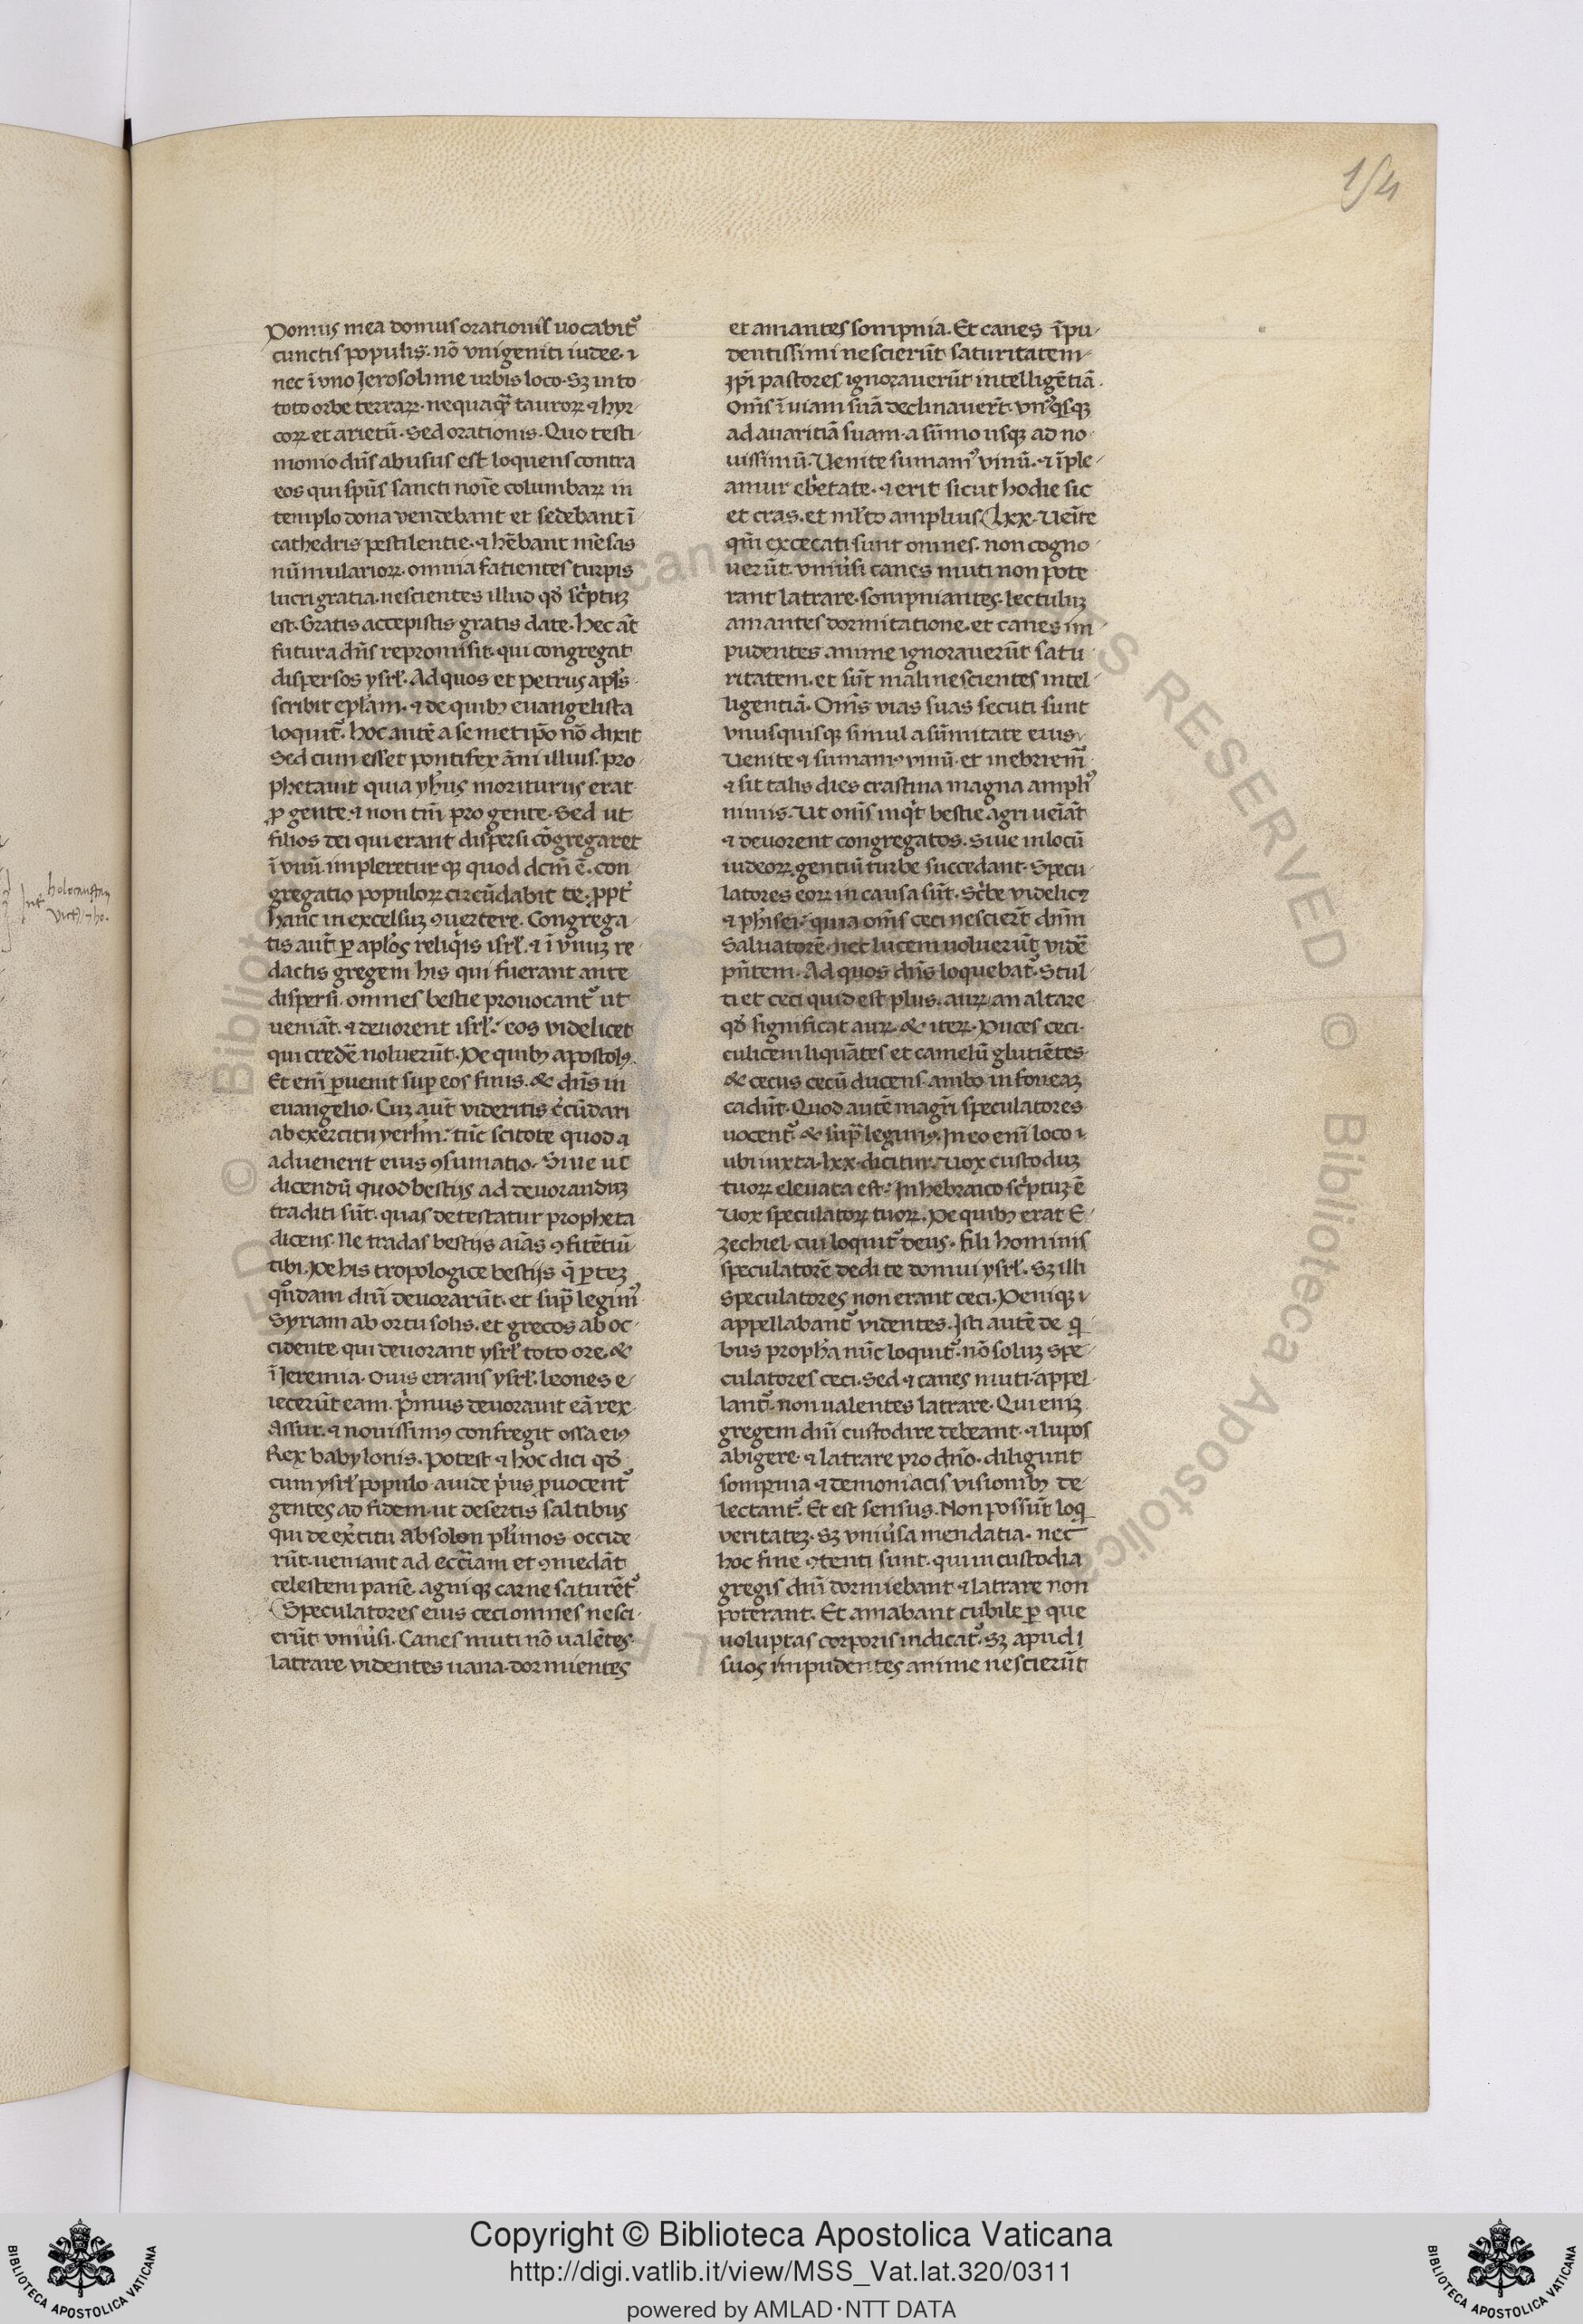 154
Domus mea domus orationis uocabit᷑
cunctis populis. nō vnigeniti iudee. ⁊
nec ī vno Jerosolime urbis loco. Sꝫ in to
toto orbe terraꝝ. nequaq̄ tauroꝝ ⁊ hyr
coꝝ et arietū. Sed orationis. Quo testi
monio dn̄s abusus est loquens contra
eos qui sp̄us sancti noīe columbaꝝ in
templo dona vendebant et sedebant ī
cathedris pestilentie. ⁊ hēbant mēsas
nūmularioꝝ. omnia fatientes turpis
lucri gratia. nescientes illud qđ sc̓ptuꝫ
est. Gratis accepistis gratis date. hec aūt
futura dn̄s repromisit. qui congregat
dispersos ysrł. Ad quos et petrus apłs
scribit epłam. ⁊ de quibꝫ euangelista
loquit᷑. hoc autē a semetip̄o nō dixit
Sed cum esset pontifex āni illius. pro
phetauit quia yħus moriturus erat
ꝓ gente. ⁊ non tm̄ pro gente. Sed ut
filios dei qui erant dispersi cōgregaret
ī vnū. impleretur qꝫ quod dcm̄ ē. con
gregatio populoꝝ circūdabit te. ꝓpt̓
hanc in excelsuꝫ ꝯuertere. Congrega
tis aut̄ ꝑ aplos reliq̓is isrł. ⁊ ī vnuꝫ re
dactis gregem his qui fuerant ante
dispersi. omnes bestie prouocant᷑ ut
ueniāt. ⁊ deuorent isrł. eos videlicet
qui credē noluerūt. De quibꝫ apostolꝰ.
Et em̄ ꝑuenit sup eos finis. &c dn̄s in
euangelio. Cuꝫ aut̄ videritis c̓cūdari
ab exercitu yerłm̄. tūc scitote quod a
aduenerit eius ꝯsumatio. Siue ut
dicendū quod bestijs ad deuoranduꝫ
traditi sūt. quas detestatur propheta
dicens. Ne tradas bestijs aīas ꝯfitētiū
tibi. De his tropologice bestijs q̄ ꝑteꝫ
qn̄dam dn̄i deuorarūt. et sup̄ legimꝰ
Syriam ab ortu solis. et grecos ab oc
cidente. qui deuorant ysrł toto ore. &c
ī Jeremia. Ouis errans ysrł. leones e
iecerūt eam. p̓mus deuorauit eā rex
Assur. ⁊ nouissimꝰ confregit ossa eiꝰ
Rex babylonis. potest ⁊ hoc dici qđ
cum ysrł populo auide p̓us ꝓuocent᷑
gentes ad fidem. ut desertis saltibus
qui de ex̓citu absolon plimos occide
rūt. ueniant ad eccłiam et ꝯmedāt
celestem panē. agni qꝫ carne saturēt᷑
Speculatores eius ceci omnes nesci
erūt vniu̓si. Canes muti nō ualētes
latrare. videntes uana. dormientes
et amantes sompnia. Et canes īpu
dentissimi nescierūt saturitatem
Jp̄i pastores ignorauerūt intelligētiā.
Om̄s ī uiam suā declinauer̄t. vnꝰq̓sqꝫ
ad auaritiā suam. a sūmo usqꝫ ad no
uissimū. Venite sumamꝰ vinū. ⁊ īple
amur eb̓etate. ⁊ erit sicut hodie sic
et cras. et mł̓to amplius. lxx. Ueīte
qm̄ excecati sunt omnes. non cogno
uerūt. vniu̓si canes muti non pote
rant latrare. sompniantes. lectuluꝫ
amantes dormitatione. et canes im
pudentes anime ignorauerūt satu
ritatem. et sūt mali nescientes intel
ligentiā. Om̄s vias suas secuti sunt
vnusquisqꝫ simul a sūmitate eius.
Venite ⁊ sumamꝰ vinū. et inebriemꝰ
⁊ sit talis dies crastina magna ampliꝰ
nimis. Ut om̄s inq̓t bestie agri ueīāt
⁊ deuorent congregatos. Siue in locū
iudeoꝝ gentiū turbe succedant. Specu
latores eoꝝ in causa sūt. Sc̓be videlicꝫ
⁊ pħisei. quia om̄s ceci nescier̄t dn̄m
Saluatorē. nec lucem uoluerūt vidē
pn̄tem. Ad quos dn̄s loquebat᷑. Stul
ti et ceci quid est plus. auꝝ an altare
qđ significat auꝝ. &c iteꝝ. Duces ceci.
culicem liquātes et camelū glutiētes
&c cecus cecū ducens. ambo in foueaꝫ
cadūt. Quod autē magr̄i speculatores
uocent᷑. &c sup̄ legimꝰ. In eo em̄ loco ⁊
ubi iuxta. lxx. dicitur. Uox custoduꝫ
tuoꝝ eleuata est. In hebraico sc̓ptuꝫ ē
Vox speculatoꝝ tuoꝝ. De quibꝫ erat E
zechiel. cui loquit᷑ deus. fili hominis
speculatorē dedi te domui ysrł. Sꝫ illi
speculatores non erant ceci. Deniqꝫ ⁊
appellabant᷑ videntes. Jsti autē de q̓
bus propħa nūc loquit᷑. nō soluꝫ spe
culatores ceci. Sed ⁊ canes muti appel
lant᷑. non ualentes latrare. Qui enīꝫ
gregem dn̄i custodire debeant. ⁊ lupos
abigere. ⁊ latrare pro dn̄o. diligunt
sompnia. ⁊ demoniacis visionibꝫ de
lectant᷑. Et est sensus. Non possūt loq̓
veritateꝫ. Sꝫ vniu̓sa mendatia. nec
hoc fine ꝯtenti sunt. qui in custodia
gregis dn̄i dormiebant ⁊ latrare non
poterant. Et amabant cubile ꝑ que
uoluptas corporis indicat᷑. Sꝫ apud l
suos impudentes anime nescierūt
Copyright © Biblioteca Apostolica Vaticana
http://digi.vatlib.it/view/MSS_Vat.lat.320/0311
powered by AMLAD·NTT DATA
BIBLIOTECA APOSTOLICA VATICANA
BIBLIOTECA APOSTOLICA VATICANA